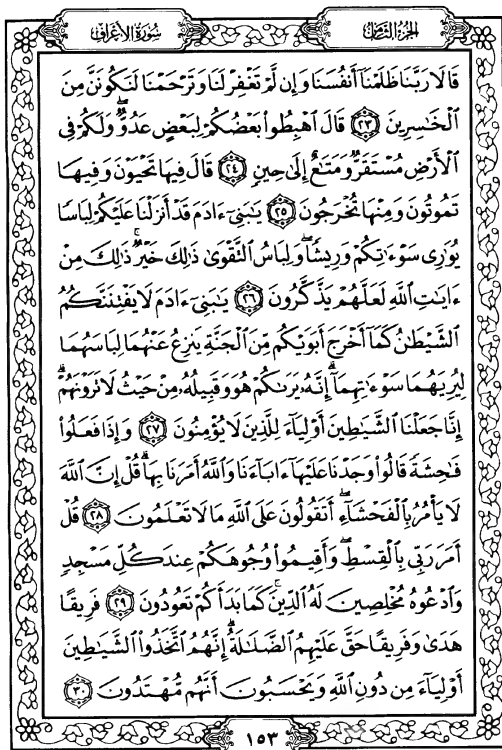 سُورَةُ الأَعْرَافِ
الجُزْءُ الثَّامِنُ
قَالَا رَبَّنَا ظَلَمْنَا أَنفُسَنَا وَإِن لَّمْ تَغْفِرْ لَنَا وَتَرْحَمْنَا لَنَكُونَنَّ مِنَ
ٱلْخَٰسِرِينَ ٢٣ قَالَ ٱهْبِطُوا۟ بَعْضُكُمْ لِبَعْضٍ عَدُوٌّ ۖ وَلَكُمْ فِى
ٱلْأَرْضِ مُسْتَقَرٌّ وَمَتَٰعٌ إِلَىٰ حِينٍ ٢٤ قَالَ فِيهَا تَحْيَوْنَ وَفِيهَا
تَمُوتُونَ وَمِنْهَا تُخْرَجُونَ ٢٥ يَٰبَنِىٓ ءَادَمَ قَدْ أَنزَلْنَا عَلَيْكُمْ لِبَاسًا
يُوَٰرِى سَوْءَٰتِكُمْ وَرِيشًا ۖ وَلِبَاسُ ٱلتَّقْوَىٰ ذَٰلِكَ خَيْرٌ ۚ ذَٰلِكَ مِنْ
ءَايَٰتِ ٱللَّهِ لَعَلَّهُمْ يَذَّكَّرُونَ ٢٦ يَٰبَنِىٓ ءَادَمَ لَا يَفْتِنَنَّكُمُ
ٱلشَّيْطَٰنُ كَمَآ أَخْرَجَ أَبَوَيْكُم مِّنَ ٱلْجَنَّةِ يَنزِعُ عَنْهُمَا لِبَاسَهُمَا
لِيُرِيَهُمَا سَوْءَٰتِهِمَآ ۗ إِنَّهُۥ يَرَىٰكُمْ هُوَ وَقَبِيلُهُۥ مِنْ حَيْثُ لَا تَرَوْنَهُمْ ۗ
إِنَّا جَعَلْنَا ٱلشَّيَٰطِينَ أَوْلِيَآءَ لِلَّذِينَ لَا يُؤْمِنُونَ ٢٧ وَإِذَا فَعَلُوا۟
فَٰحِشَةً قَالُوا۟ وَجَدْنَا عَلَيْهَآ ءَابَآءَنَا وَٱللَّهُ أَمَرَنَا بِهَا ۗ قُلْ إِنَّ ٱللَّهَ
لَا يَأْمُرُ بِٱلْفَحْشَآءِ ۖ أَتَقُولُونَ عَلَى ٱللَّهِ مَا لَا تَعْلَمُونَ ٢٨ قُلْ
أَمَرَ رَبِّى بِٱلْقِسْطِ ۖ وَأَقِيمُوا۟ وُجُوهَكُمْ عِندَ كُلِّ مَسْجِدٍ
وَٱدْعُوهُ مُخْلِصِينَ لَهُ ٱلدِّينَ ۚ كَمَا بَدَأَكُمْ تَعُودُونَ ٢٩ فَرِيقًا
هَدَىٰ وَفَرِيقًا حَقَّ عَلَيْهِمُ ٱلضَّلَٰلَةُ ۗ إِنَّهُمُ ٱتَّخَذُوا۟ ٱلشَّيَٰطِينَ
أَوْلِيَآءَ مِن دُونِ ٱللَّهِ وَيَحْسَبُونَ أَنَّهُم مُّهْتَدُونَ ٣٠
١٥٣